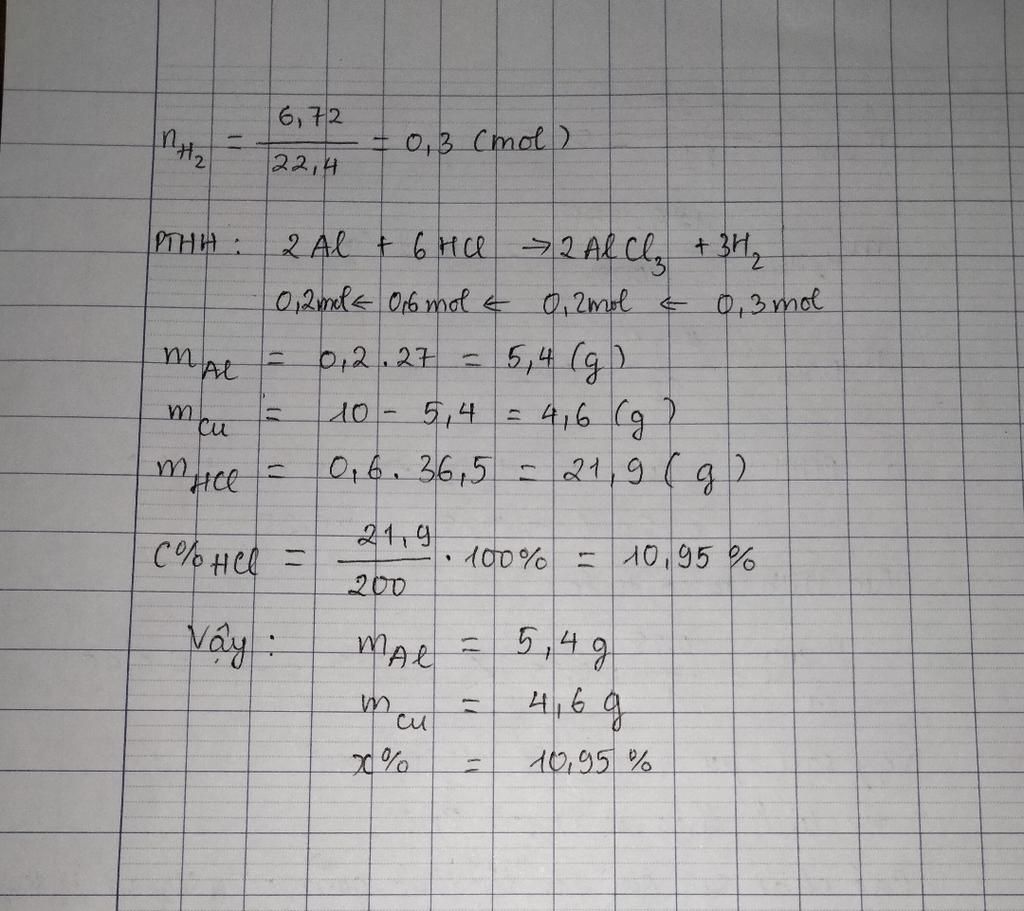 n H₂ = 6,72 / 22,4 = 0,3 (mol)
PTHH : 2Al + 6HCl → 2AlCl₃ + 3H₂
0,2mol ← 0,6mol ← 0,2mol ← 0,3mol
m Al = 0,2 . 27 = 5,4 (g)
m Cu = 10 - 5,4 = 4,6 (g)
m HCl = 0,6 . 36,5 = 21,9 (g)
C% HCl = 21,9 / 200 . 100% = 10,95 %
Vậy : m Al = 5,4 g
m Cu = 4,6 g
x% = 10,95 %